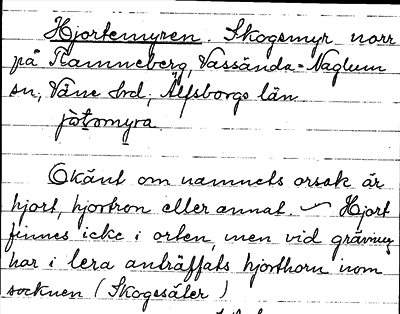 Hjortemyren. Skogsmyr norr
på Ramneberg, Vassända-Naglum
sn; Väne hd; Älfsborgs län
jo̱tomyra
Okänt om namnets orsak är
hjort, hjortron eller annat. — Hjort
finnes icke i orten, men vid grävning
har i lera anträffats hjorthorn inom
socknen (Skogsäter)